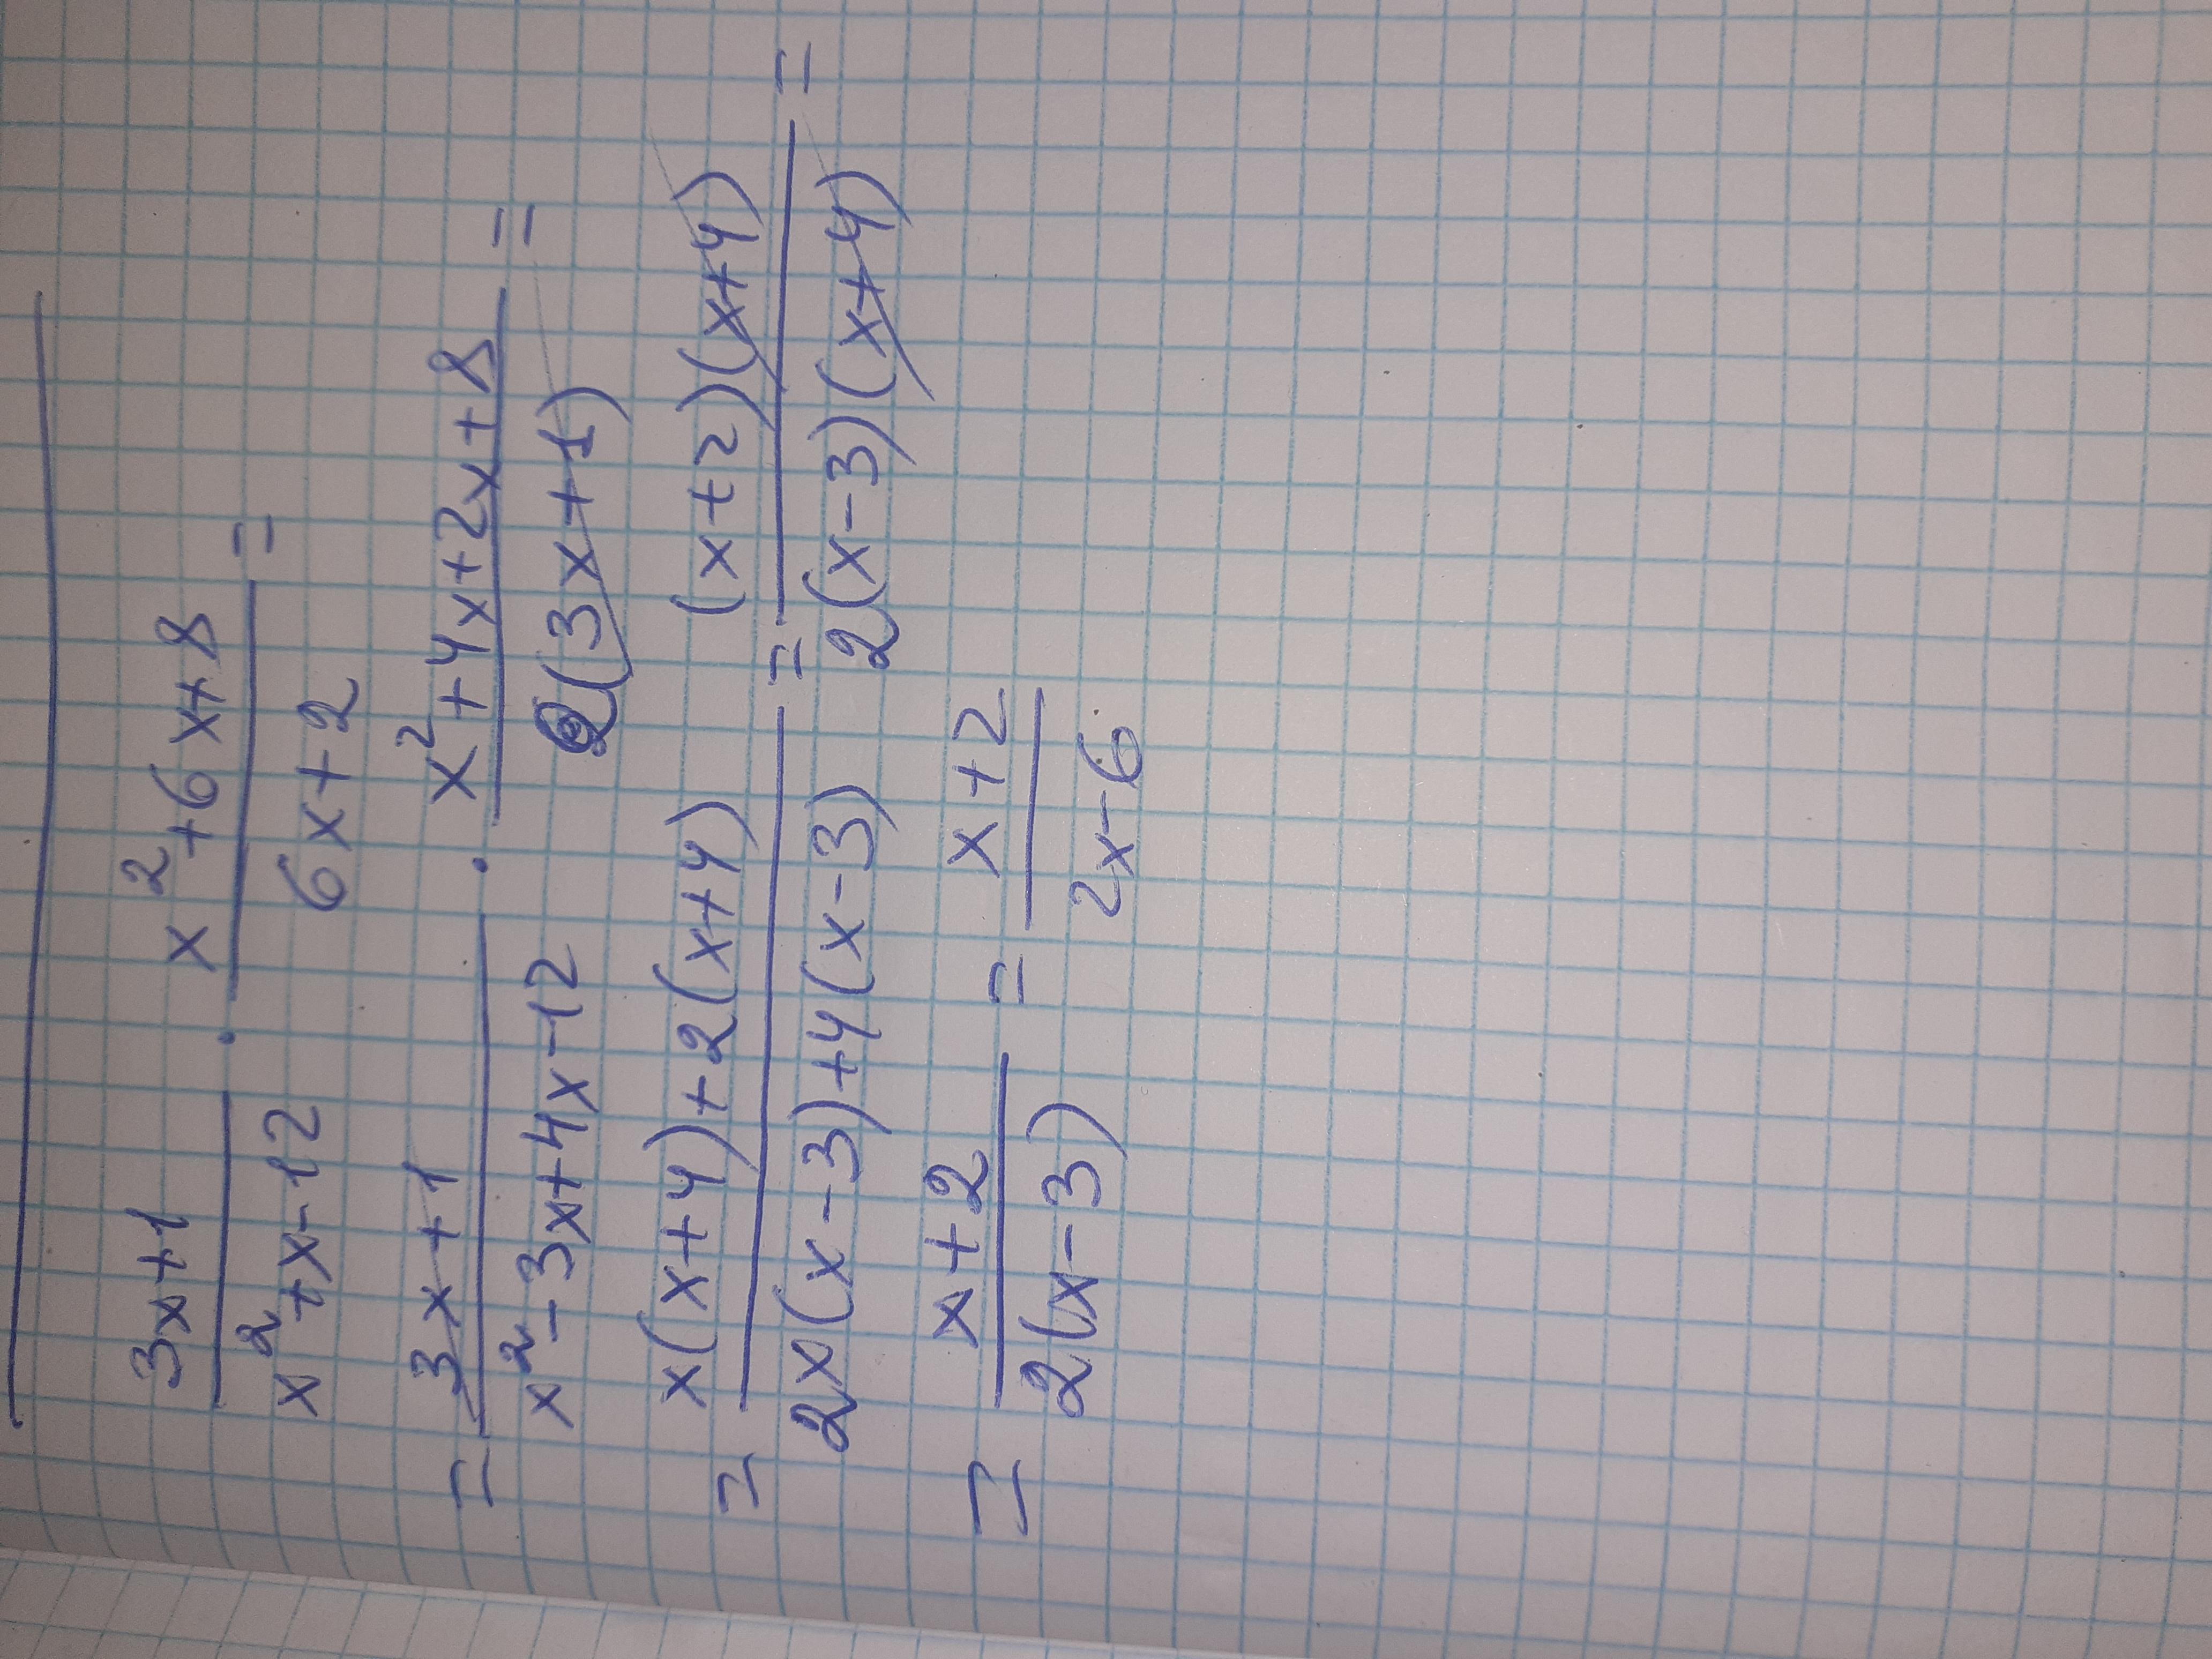 (3x+1)/(x²+x-12) · (x²+6x+8)/(6x+2) =
= (3x+1)/(x²-3x+4x-12) · (x²+4x+2x+8)/(2(3x+1)) =
= (x(x+4)+2(x+4))/(2x(x-3)+4(x-3)) = ((x+2)(x+4))/(2(x-3)(x+4)) =
= (x+2)/(2(x-3)) = (x+2)/(2x-6)